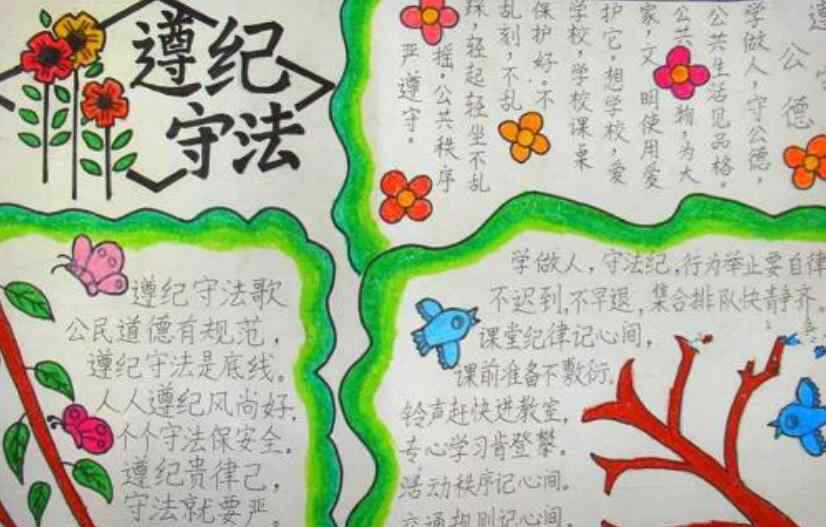 遵纪
守法
遵守
公德
学做人，守公德，
公共生活见品格。
公共 物，为大
家，文明使用爱
护它。想学校，爱
学校，学校课桌
保护好。不
乱刻，不乱
踩，轻起轻坐不乱
摇，公共秩序
严遵守。
遵纪守法歌
公民道德有规范，
遵纪守法是底线。
人人遵纪风尚好，
个个守法保安全。
遵纪贵律己，
守法就要严。
学做人，守法纪，行为举止要自律
不迟到，不早退，集合排队快静齐。
课堂纪律记心间，
课前准备不敷衍，
铃声赶快进教室，
专心学习肯登攀。
活动秩序记心间。
交通规则记心间，